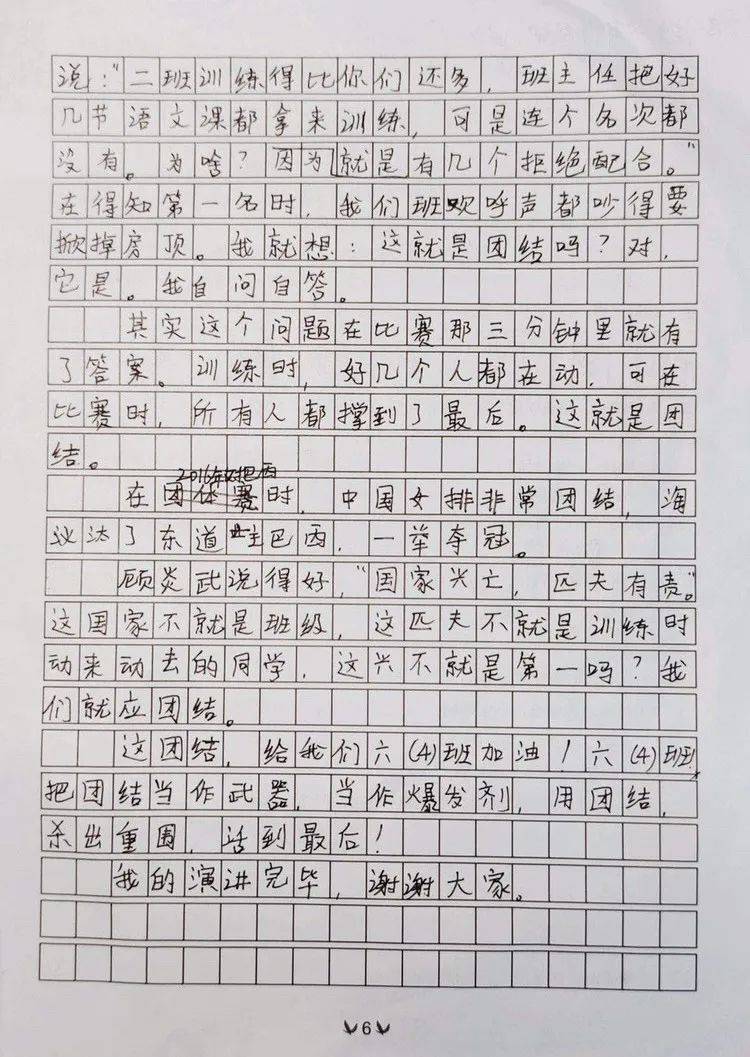 说："二班训练得比你们还多，班主任把好
几节语文课都拿来训练，可是连个名次都
没有。为啥？因为就是有几个拒绝配合。"
在得知第一名时，我们班欢呼声都吵得要
掀掉房顶。我就想：这就是团结吗？对，
它是。我自问自答。
其实这个问题在比赛那三分钟里就有
了答案。训练时，好几个人都在动，可在
比赛时，所有人都撑到了最后。这就是团
结。
2016年
在团体赛时，中国女排非常团结，淘
汰了东道主巴西，一举夺冠。
顾炎武说得好，"国家兴亡，匹夫有责。"
这国家不就是班级，这匹夫不就是训练时
动来动去的同学，这兴不就是第一吗？我
们就应团结。
这团结，给我们六(4)班加油！六(4)班！
把团结当作武器，当作爆发剂，用团结，
杀出重围，活到最后！
我的演讲完毕，谢谢大家。
6